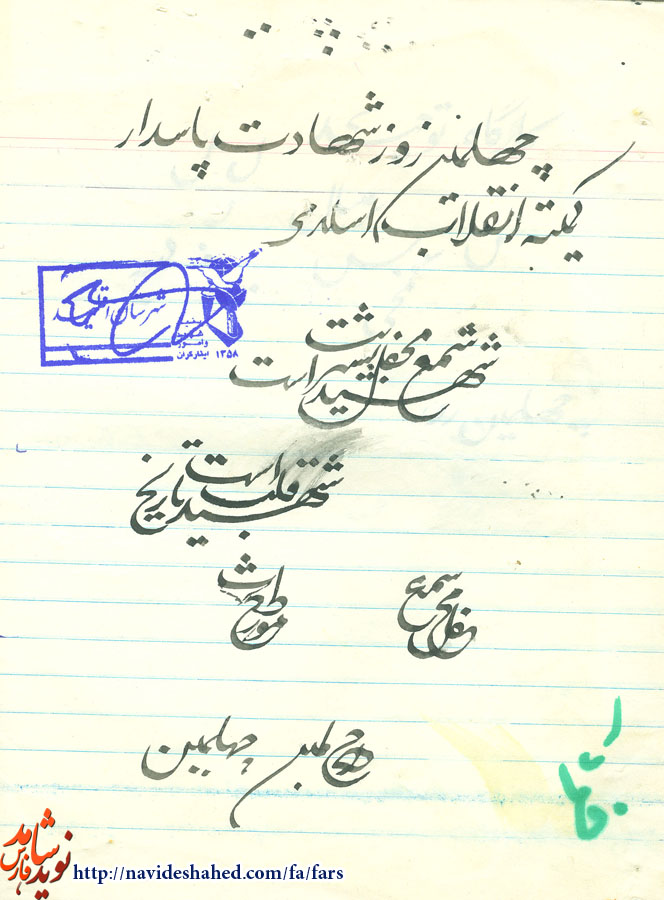 چهلمین روز شهادت پاسدار
کمیته انقلاب اسلامی
شهید شمع محفل بشریت است
شهرستان اقلید
بنیاد شهید
و امور
ایثارگران ۱۳۵۸
شهید قلب تاریخ است
شمع
چهلمین
نوید شاهد
فارس
http://navideshahed.com/fa/fars